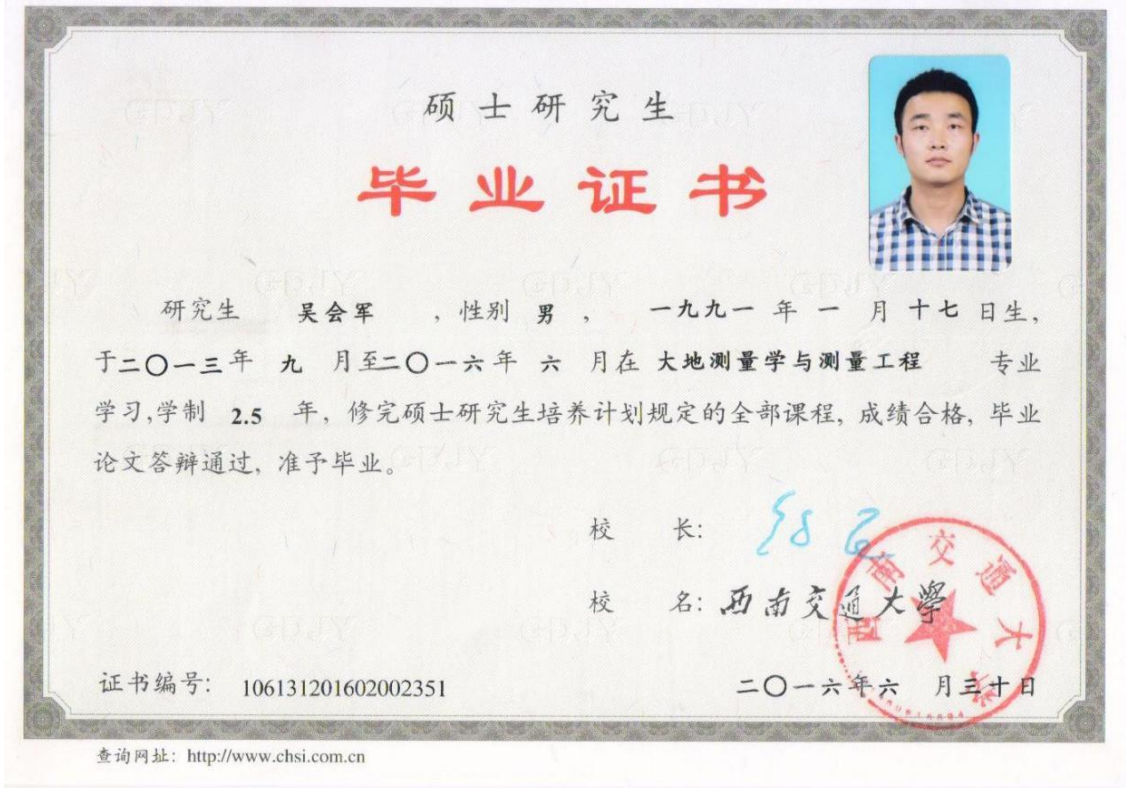 硕士研究生
毕业证书
研究生 吴会军 ，性别 男 ， 一九九一 年 一 月 十七 日生，
于二〇一三年 九 月至二〇一六年 六 月在 大地测量学与测量工程 专业
学习,学制 2.5 年，修完硕士研究生培养计划规定的全部课程，成绩合格，毕业
论文答辩通过，准予毕业。
校 长：
校 名：西南交通大學
西南交通大学
证书编号： 106131201602002351
二〇一六年六 月三十日
查询网址：http://www.chsi.com.cn